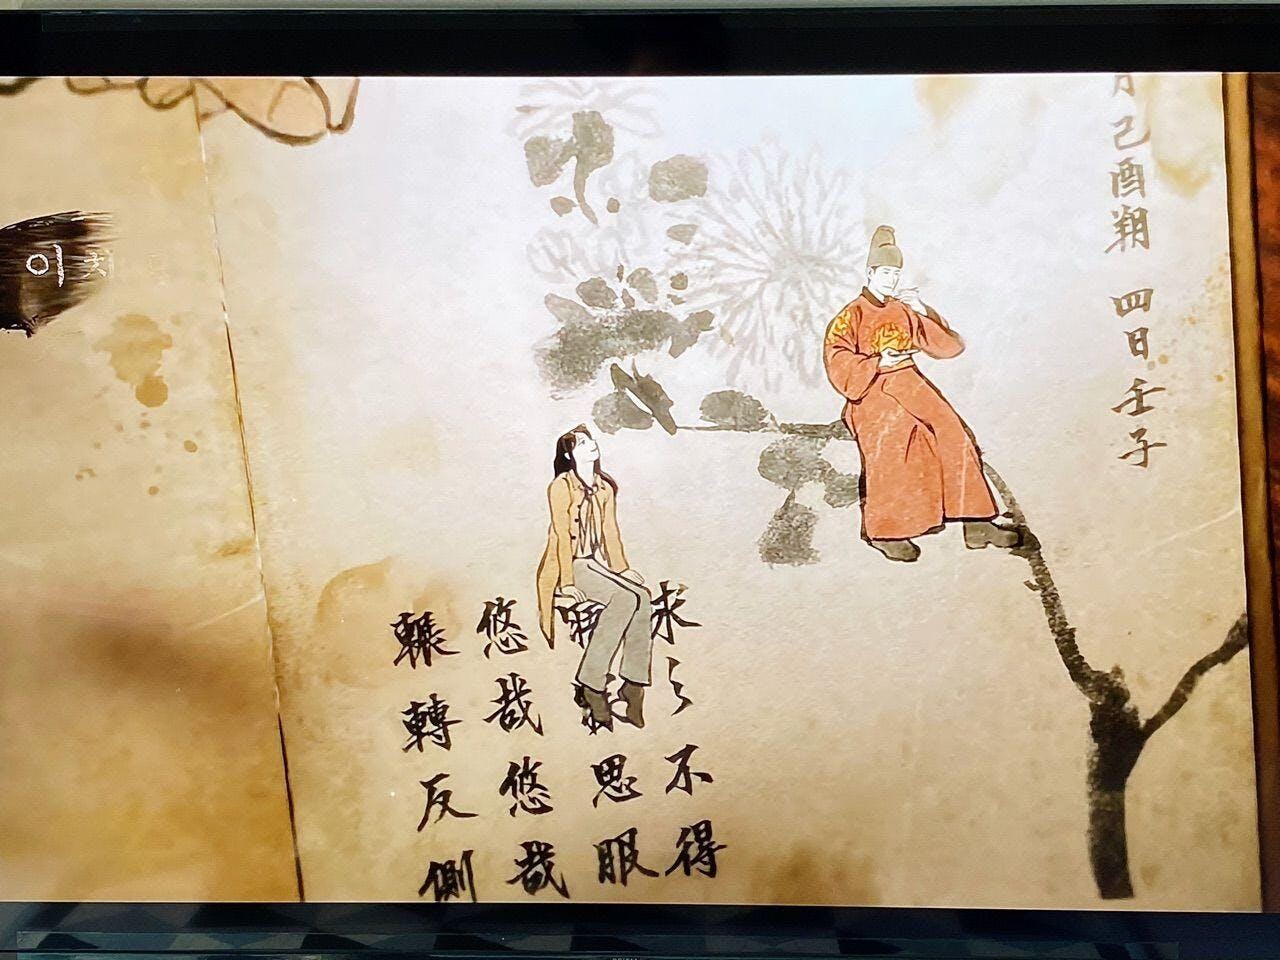 月己酉朔 四日壬子
求之不得
思服
悠哉悠哉
輾轉反側
이